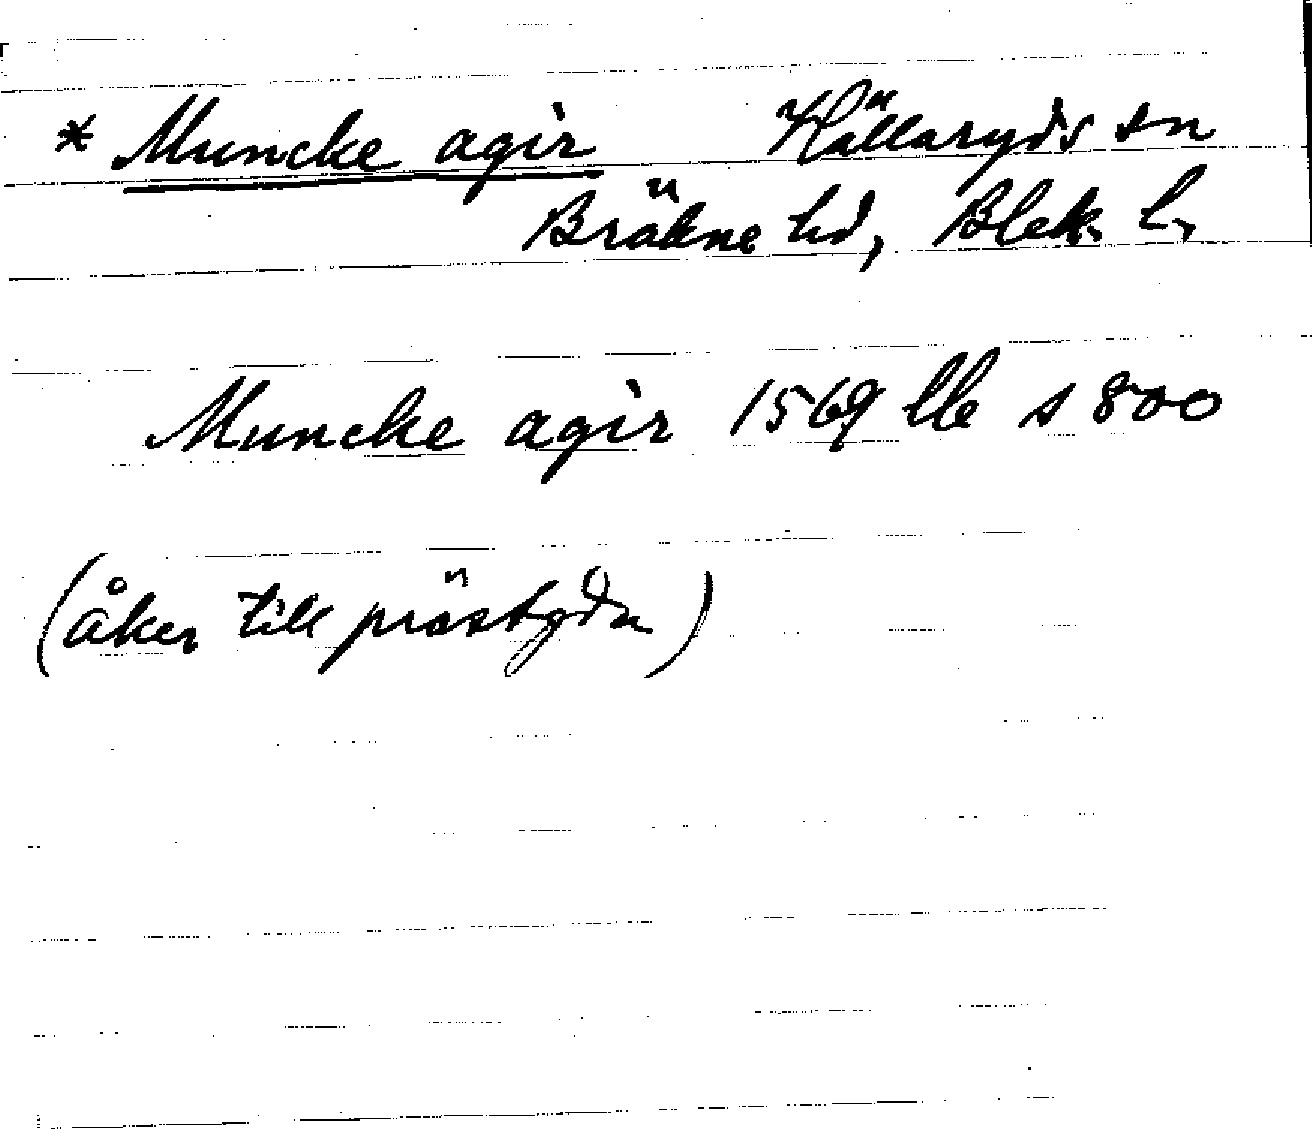 * Muncke agir Hällaryds sn
Bräkne hd, Blek. l.
Muncke agir 1569 llb s 800
(åker till prästgdn)